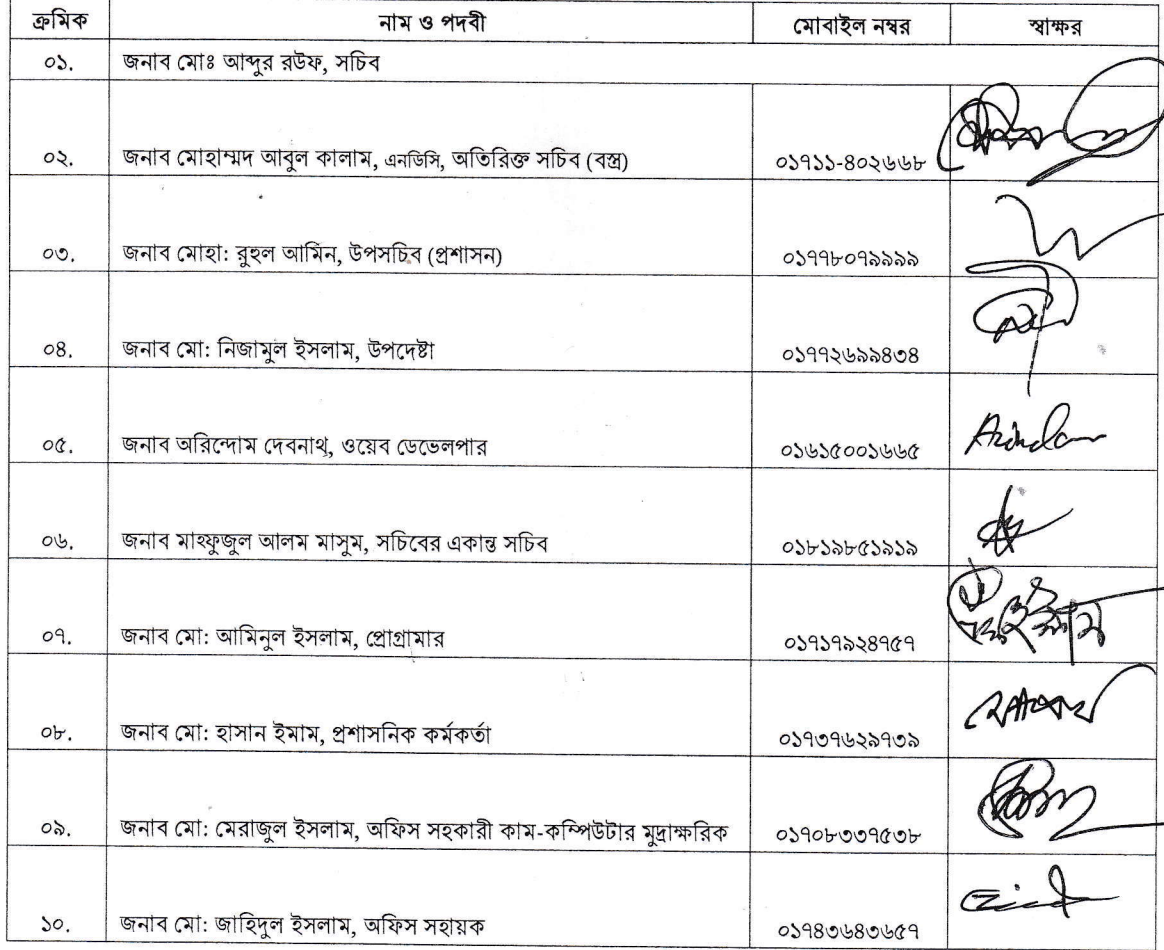 ক্রমিক নাম ও পদবী মোবাইল নম্বর স্বাক্ষর
০১. জনাব মোঃ আব্দুর রউফ, সচিব
০২. জনাব মোহাম্মদ আবুল কালাম, এনডিসি, অতিরিক্ত সচিব (বস্ত্র) ০১৭১১-৪০২৬৬৮
০৩. জনাব মোহা: রুহুল আমিন, উপসচিব (প্রশাসন) ০১৭৭৮০৭৯৯৯৯
০৪. জনাব মো: নিজামুল ইসলাম, উপদেষ্টা ০১৭৭২৬৯৯৪৩৪
০৫. জনাব অরিন্দোম দেবনাথ, ওয়েব ডেভেলপার ০১৬১৫০০১৬৬৫ Arindam
০৬. জনাব মাহফুজুল আলম মাসুম, সচিবের একান্ত সচিব ০১৮১৯৮৫১৯১৯
০৭. জনাব মো: আমিনুল ইসলাম, প্রোগ্রামার ০১৭১৭৯২৪৭৫৭
০৮. জনাব মো: হাসান ইমাম, প্রশাসনিক কর্মকর্তা ০১৭৩৭৬২৯৭৩৯
০৯. জনাব মো: মেরাজুল ইসলাম, অফিস সহকারী কাম-কম্পিউটার মুদ্রাক্ষরিক ০১৭০৮৩৩৭৫৩৮
১০. জনাব মো: জাহিদুল ইসলাম, অফিস সহায়ক ০১৭৪৩৬৪৩৬৫৭